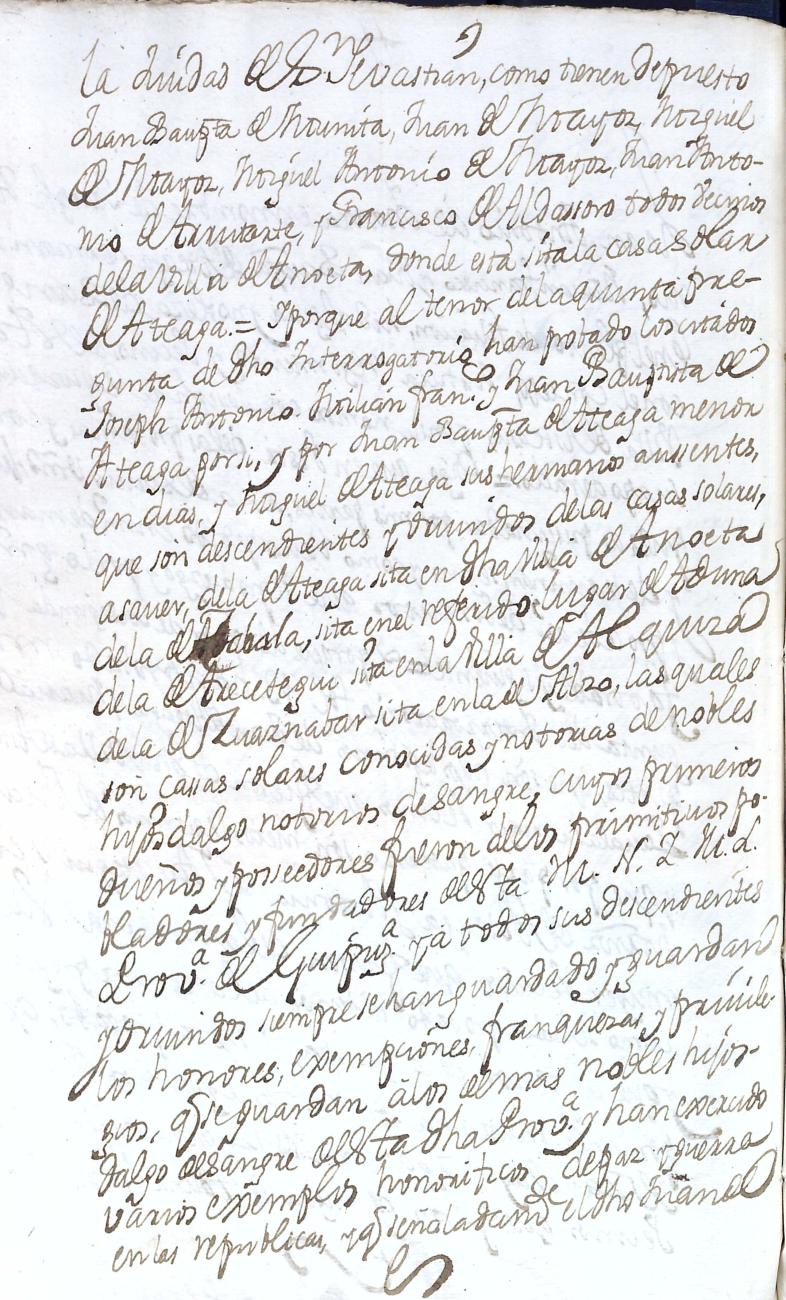 la Ciudad de Sn. Sevastian, como tienen depuesto
Juan Baupta de Nounita, Juan de Mayoz, Miguel
de Mayoz, Miguel Antonio de Mayoz, Juan Anto-
nio de Arrutante, y Francisco de Aldassoro todos vecinos
dela Villa de Anoeta, donde está sita la casa Solar
de Ateaga. = Y porque al tenor dela quinta pre-
gunta de dho Interrogatorio han probado los citados
Joseph Antonio, Milian franco. y Juan Bauptista de
Ateaga por si, y por Juan Baupta de Ateaga menor
en dias, y Miguel de Ateaga sus hermanos aussentes,
que són descendientes y oriundos delas casas solares,
asaver, dela de Ateaga sita en dha Villa de Anoeta
dela de Zabala, sita en el referido lugar de Aduna
dela de Arecetegui sita en la Villa de Alquiza
dela de Zuaznabar sita en la de Alzo, las quales
són cassas solares conocidas y notorias de nobles
hijosdalgo notorios de sangre, cuyos primeros
dueños y posseedores fueron delos primitivos po-
bladores y fundadores de esta M. N. Y M. L.
Prova. de Guipuza. y a todos sus descendientes
y oriundos siempre se han guardado y guardan
los honores, exempciónes, franquezas, y privile-
gios, q se guardan álos demas nobles hijos-
dalgo de sangre de esta dha Prova. y han exercido
varios exemplos honorificos de paz y guerra
en las republicas, y q señaladamte el dho Juan de